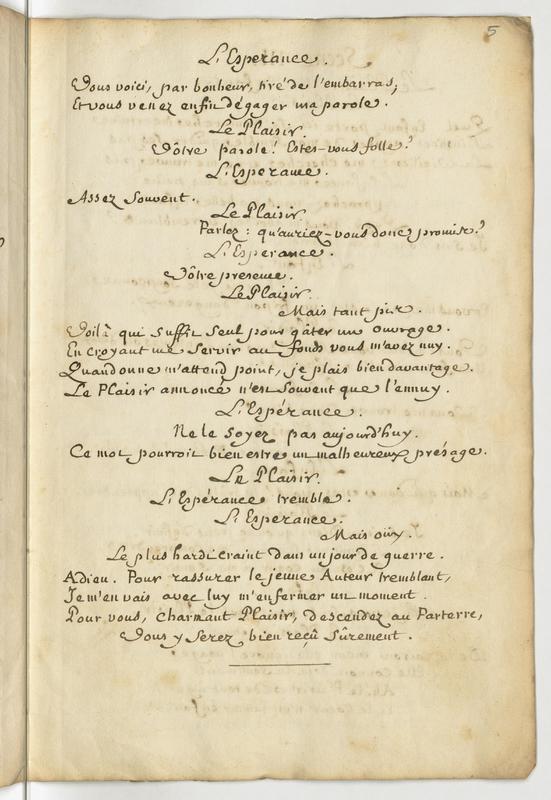 5
L'Esperance.
Vous voici, par bonheur, tiré de l'embarras;
Et vous venez enfin dégager ma parole.
Le Plaisir.
Vôtre parole! Estes-vous folle?
L'Esperance.
Assez Souvent.
Le Plaisir.
Parlez: qu'auriez-vous donc promis?
L'Esperance.
Vôtre presence.
Le Plaisir.
Mais tant pis.
Voilà qui suffit seul pour gâter un ouvrage.
En croyant me servir au fonds vous m'avez nuy.
Quand on ne m'attend point, je plais bien davantage.
Le Plaisir annoncé n'est souvent que l'ennuy.
L'Espérance.
Ne le soyez pas aujourd'huy.
Ce mot pourroit bien estre un malheureux présage.
Le Plaisir.
L'Espérance tremble.
L'Esperance.
Mais oüy.
Le plus hardi craint dans un jour de guerre.
Adieu. Pour rassurer le jeune Auteur tremblant,
Je m'en vais avec luy m'enfermer un moment.
Pour vous, charmant Plaisir, descendez au Parterre,
Vous y serez bien reçû sûrement.